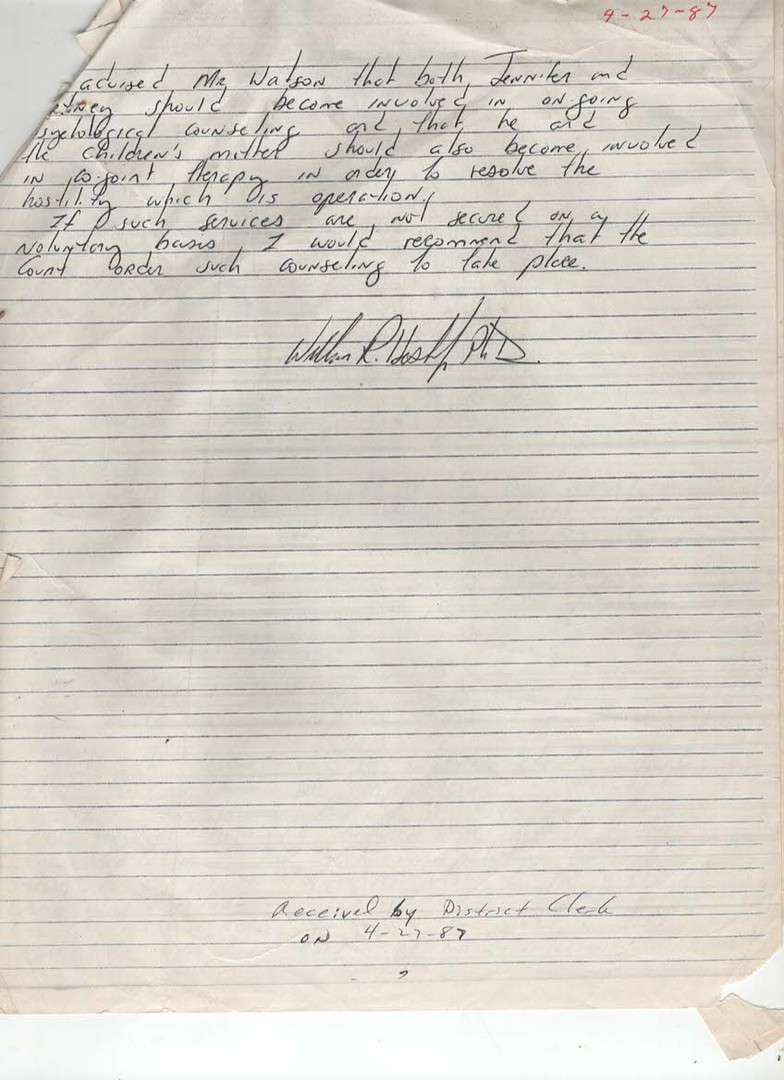 4-27-87
advised Mr. Watson that both Jennifer and
should become involved in on-going
sychological counseling and that he and
the children's mother should also become involved
in co-joint therapy in order to resolve the
hostility which is operation.
If such services are not secured on a
voluntary basis, I would recommend that the
Court order such counseling to take place.
William R. Ph.D.
Received by District Clerk
on 4-27-87